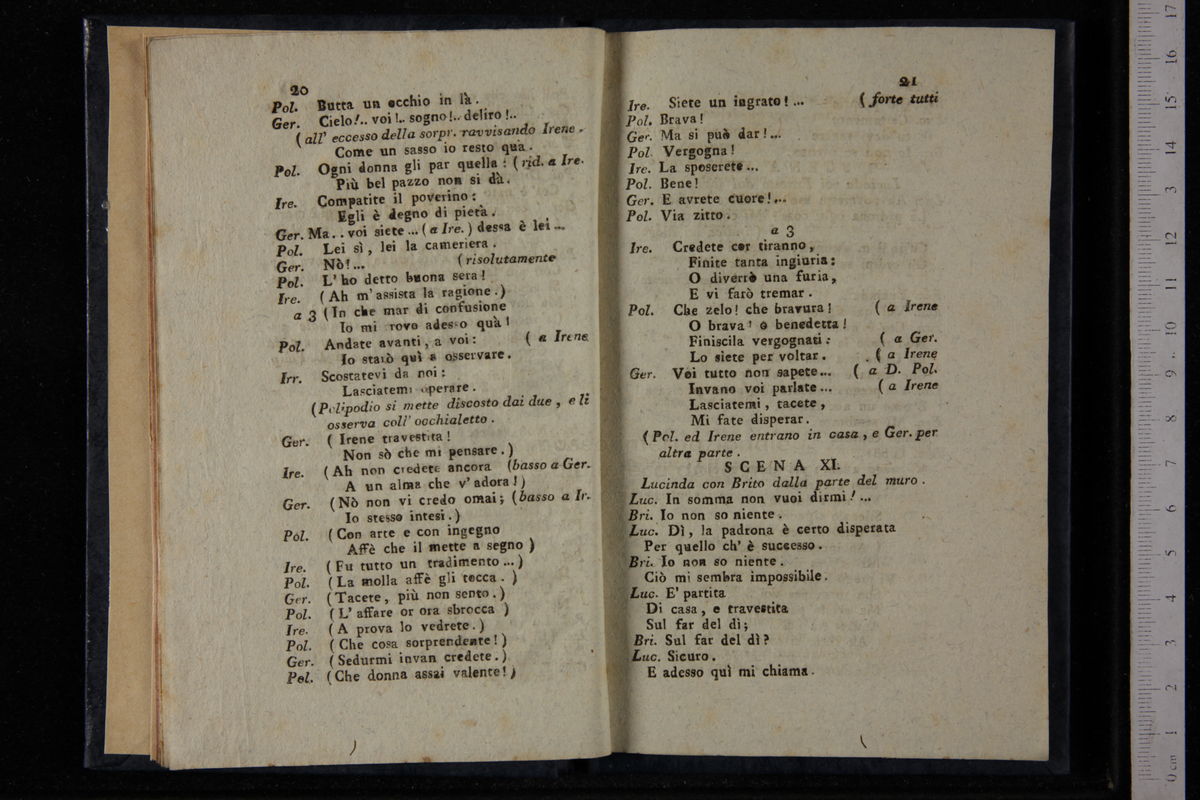 20
Pol. Butta un occhio in là.
Ger. Cielo!.. voi!.. sogno!.. deliro!..
(all' eccesso della sorpr. ravvisando Irene.
Come un sasso io resto quà.
Pol. Ogni donna gli par quella: (rid. a Ire.
Più bel pazzo non si dà.
Ire. Compatite il poverino:
Egli è degno di pietà.
Ger. Ma.. voi siete... (a Ire.) dessa è lei...
Pol. Lei sì, lei la cameriera.
Ger. Nò!... (risolutamente
Pol. L'ho detto buona sera!
Ire. (Ah m'assista la ragione.)
a 3 (In che mar di confusione
Io mi rovo adesso quà!
Pol. Andate avanti, a voi: (a Irene
Io starò quì a osservare.
Irr. Scostatevi da noi:
Lasciatemi operare.
(Polipodio si mette discosto dai due, e li
osserva coll' occhialetto.
Ger. (Irene travestita!
Non sò che mi pensare.)
Ire. (Ah non credete ancora (basso a Ger.
A un alma che v'adora!)
Ger. (Nò non vi credo omai; (basso a Ir.
Io stesso intesi.)
Pol. (Con arte e con ingegno
Affè che il mette a segno)
Ire. (Fu tutto un tradimento...)
Pol. (La molla affè gli tocca.)
Ger. (Tacete, più non sento.)
Pol. (L'affare or ora sbrocca)
Ire. (A prova lo vedrete.)
Pol. (Che cosa sorprendente!)
Ger. (Sedurmi invan credete.)
Pol. (Che donna assai valente!)
21
Ire. Siete un ingrato!... (forte tutti
Pol. Brava!
Ger. Ma si può dar!...
Pol. Vergogna!
Ire. La sposerete...
Pol. Bene!
Ger. E avrete cuore!...
Pol. Via zitto.
a 3
Ire. Credete cor tiranno,
Finite tanta ingiuria:
O diverrò una furia,
E vi farò tremar.
Pol. Che zelo! che bravura! (a Irene
O brava! o benedetta!
Finiscila vergognati: (a Ger.
Lo siete per voltar. (a Irene
Ger. Voi tutto non sapete... (a D. Pol.
Invano voi parlate... (a Irene
Lasciatemi, tacete,
Mi fate disperar.
(Pol. ed Irene entrano in casa, e Ger. per
altra parte.
SCENA XI.
Lucinda con Brito dalla parte del muro.
Luc. In somma non vuoi dirmi!...
Bri. Io non so niente.
Luc. Dì, la padrona è certo disperata
Per quello ch'è successo.
Bri. Io non so niente.
Ciò mi sembra impossibile.
Luc. E' partita
Di casa, e travestita
Sul far del dì;
Bri. Sul far del dì?
Luc. Sicuro.
E adesso quì mi chiama.
0 cm 1 2 3 4 5 6 7 8 9 10 11 12 13 14 15 16 17